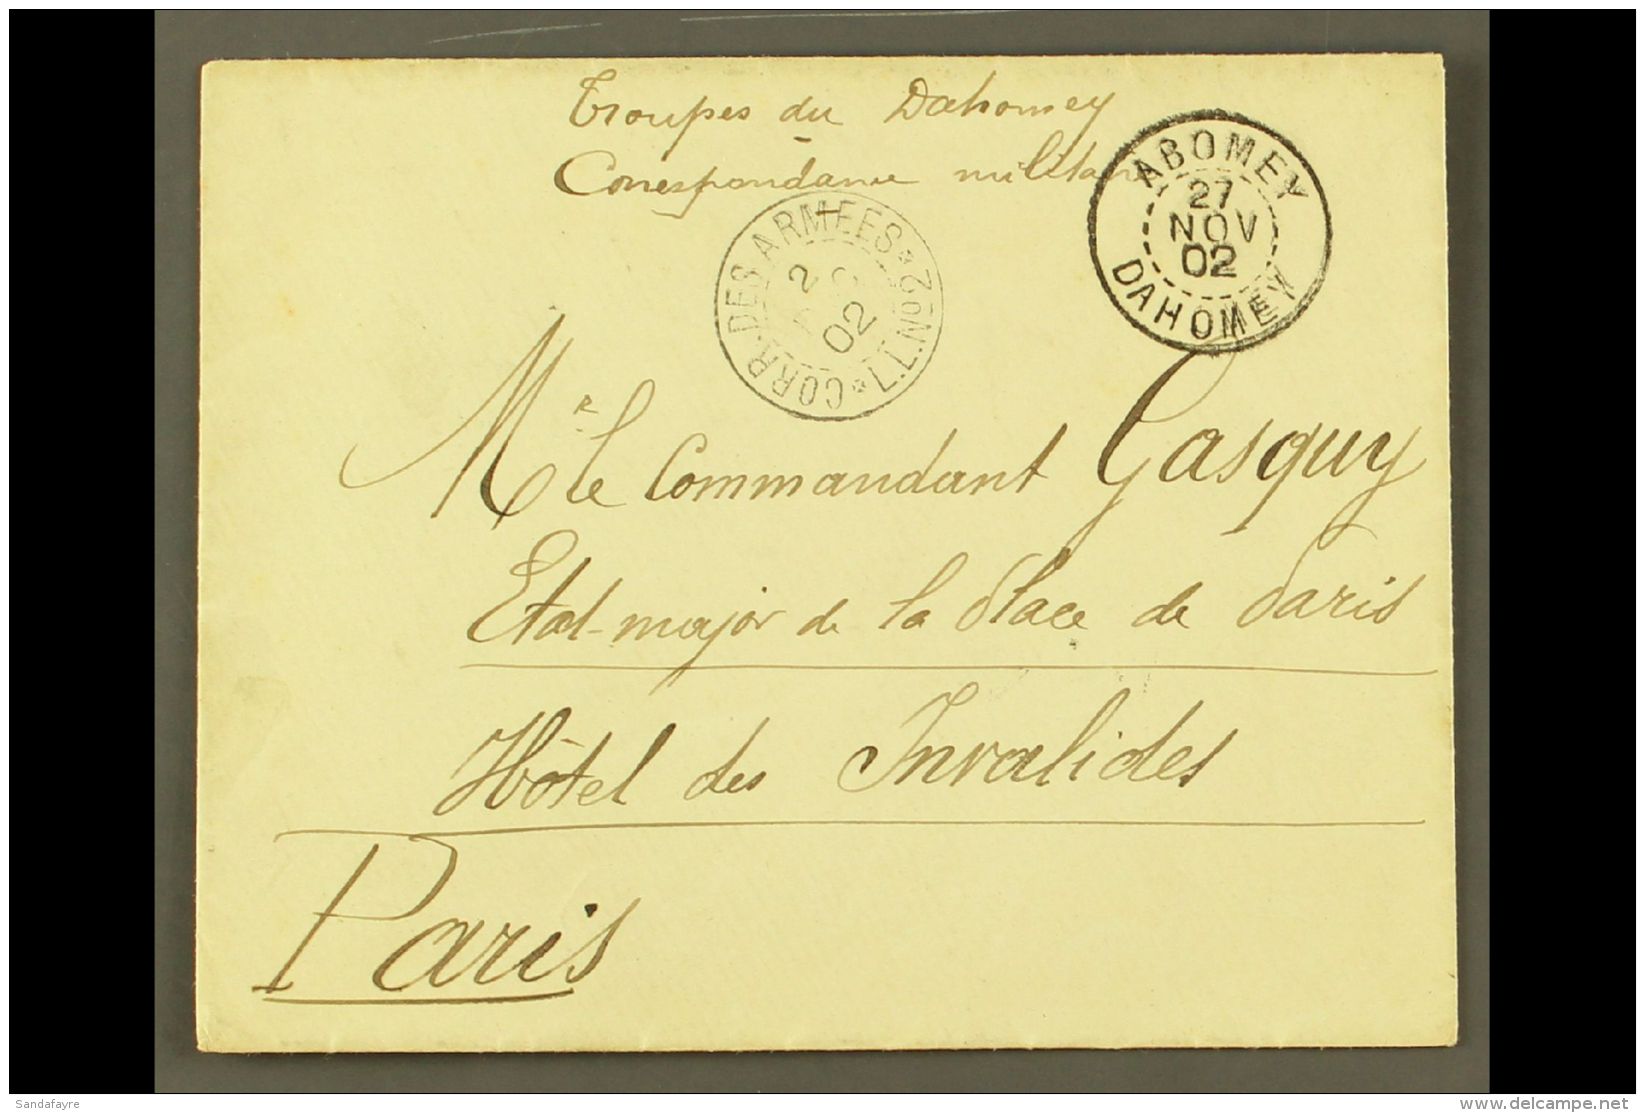 Troupes du Dahomey
Correspondance militaire
ABOMEY
27
NOV
02
DAHOMEY
CORR. DES ARMEES * L.L. No2 *
2
02
Mr le Commandant Gasquy
Etat-major de la Place de Paris
Hôtel des Invalides
Paris
Sandafayre
delcampe.net